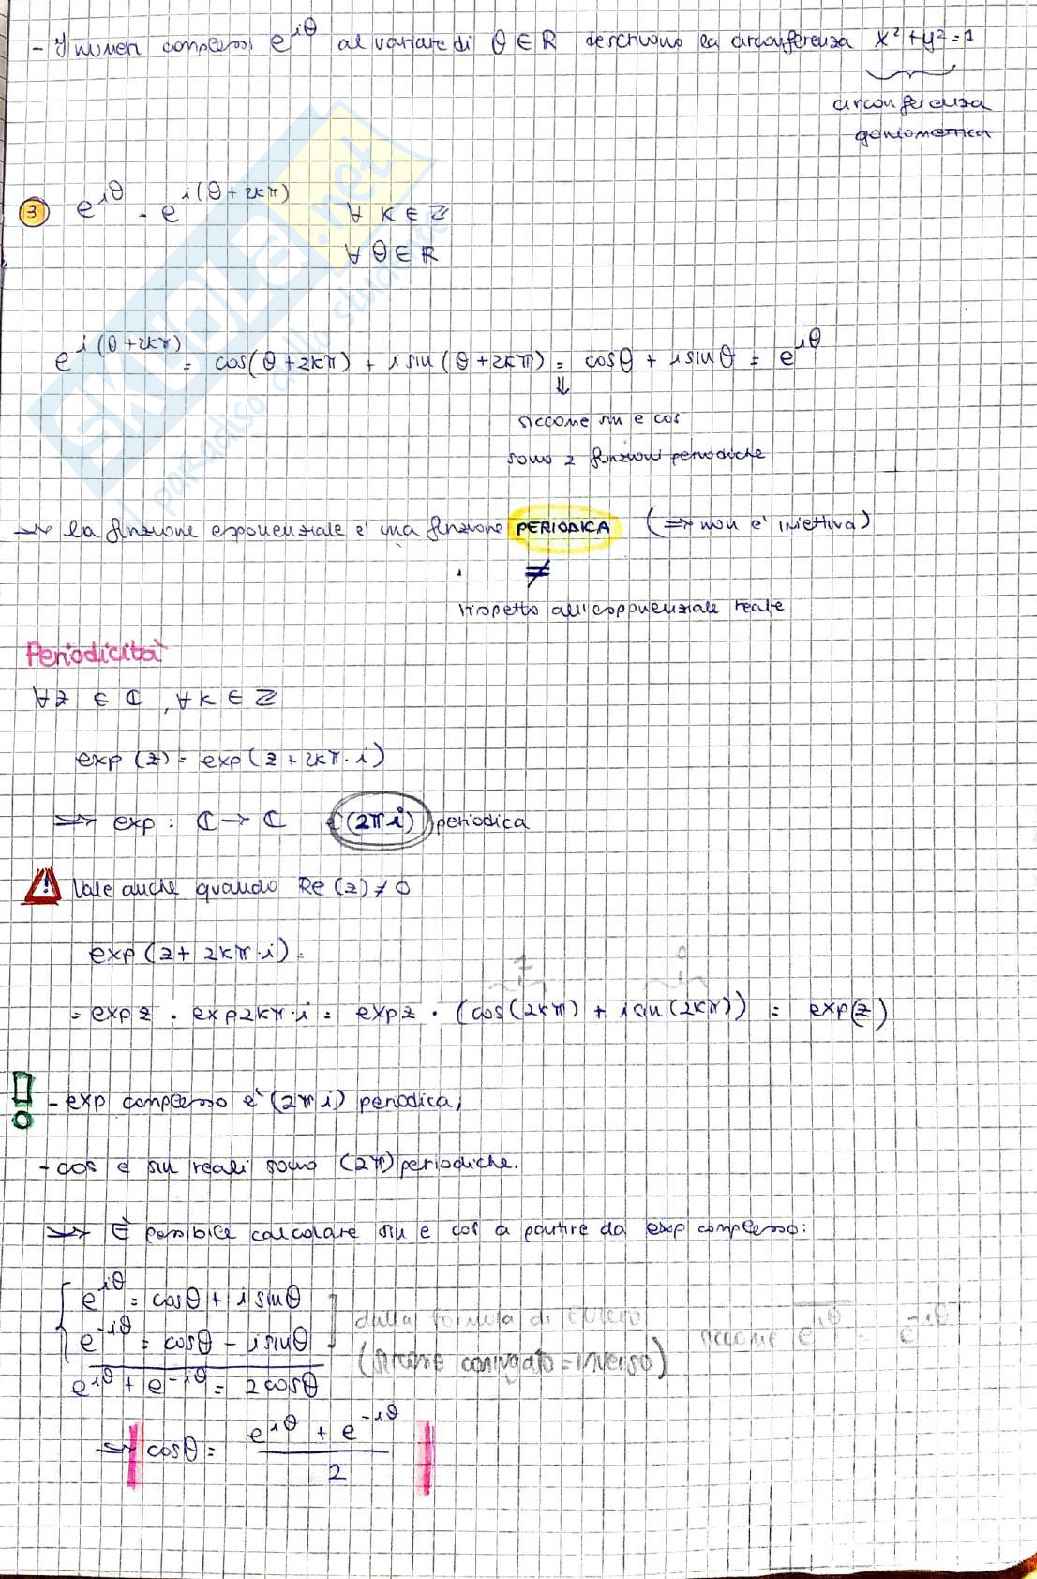 - I numeri complessi e^iθ al variare di θ ∈ R descrivono la circonferenza x² + y² = 1
circonferenza
goniometrica
3 e^iθ = e^i(θ + 2kπ) ∀ k ∈ Z
∀ θ ∈ R
e^i(θ+2kπ) = cos(θ + 2kπ) + i sin(θ + 2kπ) = cosθ + i sinθ = e^iθ
⇓
siccome sin e cos
sono 2 funzioni periodiche
→ la funzione esponenziale è una funzione PERIODICA (⇒ non è iniettiva)
≠
rispetto all'esponenziale reale
Periodicità
∀z ∈ C, ∀k ∈ Z
exp(z) = exp(z + 2kπ·i)
⇒ exp : C → C (2πi) periodica
! Vale anche quando Re(z) ≠ 0
exp(z + 2kπ·i) =
1 0
= exp z · exp 2kπ·i = exp z · (cos(2kπ) + i sin(2kπ)) = exp(z)
! - exp complesso è (2πi) periodica,
- cos e sin reali sono (2π) periodiche.
⇒ È possibile calcolare sin e cos a partire da exp complesso:
e^iθ = cosθ + i sinθ
dalla formula di Eulero
e^-iθ = cosθ - i sinθ
siccome e^iθ = e^-iθ
(siccome coniugato = inverso)
e^iθ + e^-iθ = 2cosθ
⇒ cosθ = (e^iθ + e^-iθ) / 2
SKUOLA.net
paradiso dello studente